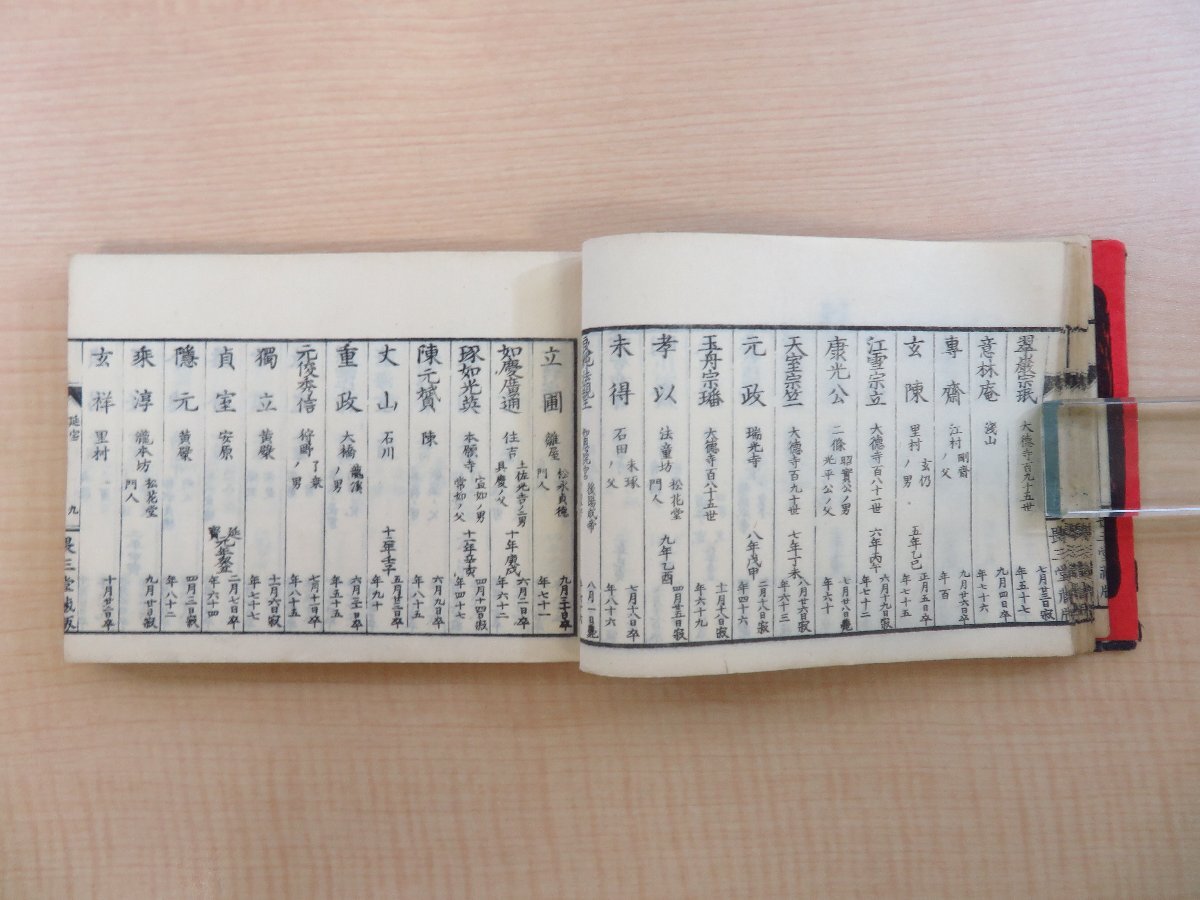 翠巖宗珉 大德寺百九十五世 七月廿三日寂 年五十七
意林庵 淺山 九月四日卒 年七十六
專齋 江村 剛齋 九月廿六日卒 年百
玄陳 里村 玄仍ノ男 五年乙巳 正月五日卒 年七十五
江雪宗立 大德寺百八十一世 六年丙午 六月十九日寂 年七十二
康光公 二條 昭實公ノ男 光平公ノ父 七月廿八日薨 年六十
天室宗竺 大德寺百九十世 七年丁未 八月廿六日寂 年六十三
元政 瑞光寺 八年戊申 二月十八日寂 年四十六
玉舟宗璠 大德寺百八十五世 十一月十八日寂 年六十九
孝以 法童坊 松花堂門人 九年己酉 四月廿五日寂
未得 石田 未琢ノ父 七月十八日卒 年八十六
後陽成帝 八月一日薨
立圃 雛屋 松永貞德門人 九月三十日卒 年七十一
如慶廣通 住吉 土佐光吉ノ二男 具慶ノ父 十年庚戌 六月二日卒 年六十二
琢如光英 本願寺 宣如ノ男 常如ノ父 十一年辛亥 四月十四日寂 年四十七
陳元贇 陳 六月九日卒 年八十五
丈山 石川 十二年壬子 五月廿三日卒 年九十
重政 大橋 龍溪ノ男 六月三十日卒 年五十五
元俊秀信 狩野 了承ノ男 七月十二日卒 年八十五
獨立 黃檗 十一月六日寂 年七十七
貞室 安原 延寶元年癸丑 二月七日卒 年六十四
隱元 黃檗 四月三日寂 年八十二
乘淳 瀧本坊 松花堂門人 九月廿日寂
玄祥 里村 十月廿二日卒
延宝 九